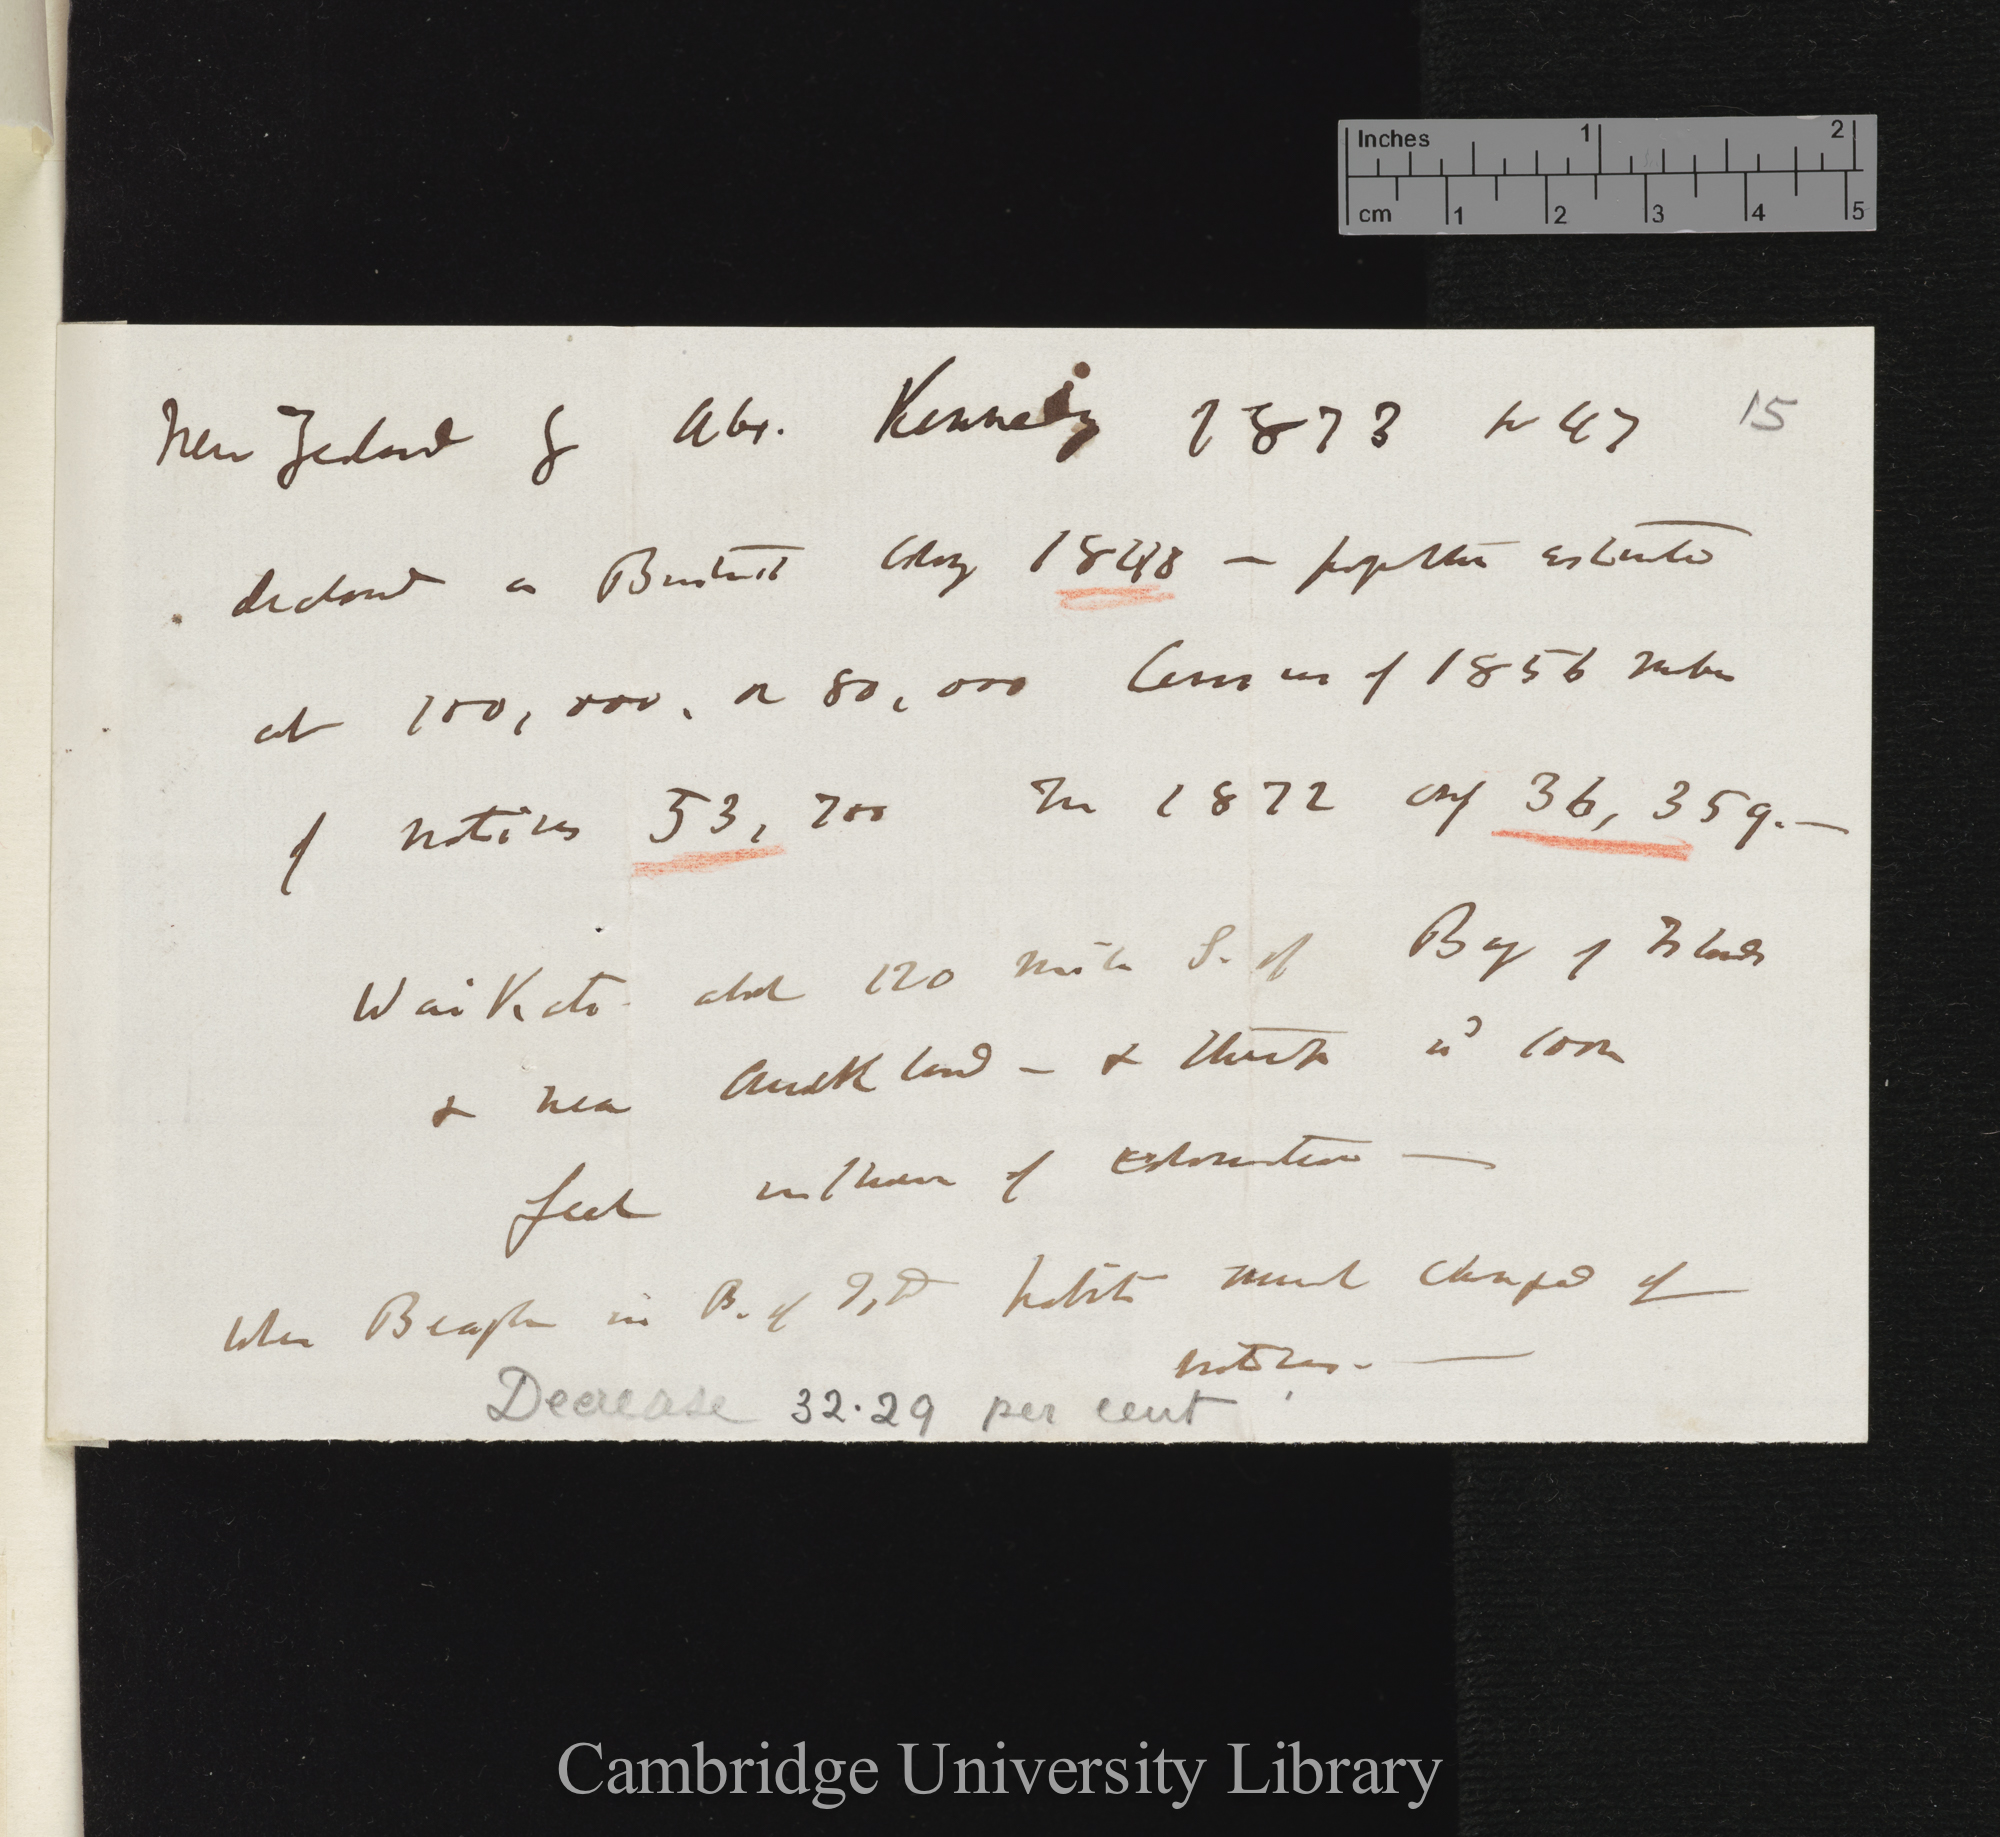 Inches 1 2
cm 1 2 3 4 5
New Zealand by Alex. Kennedy 1873 p 47 15
declared a British Colony 1848 — population estimated
at 100,000. or 80,000 Census of 1856 number
of natives 53,700 In 1872 only 36,359.—
WaiKato about 120 miles S. of Bay of Islands
& near Auckland — & therefore wd soon
feel influence of colonisation —
When Beagle in B. of Isd habits much changed of
natives. —
Decrease 32.29 per cent
Cambridge University Library